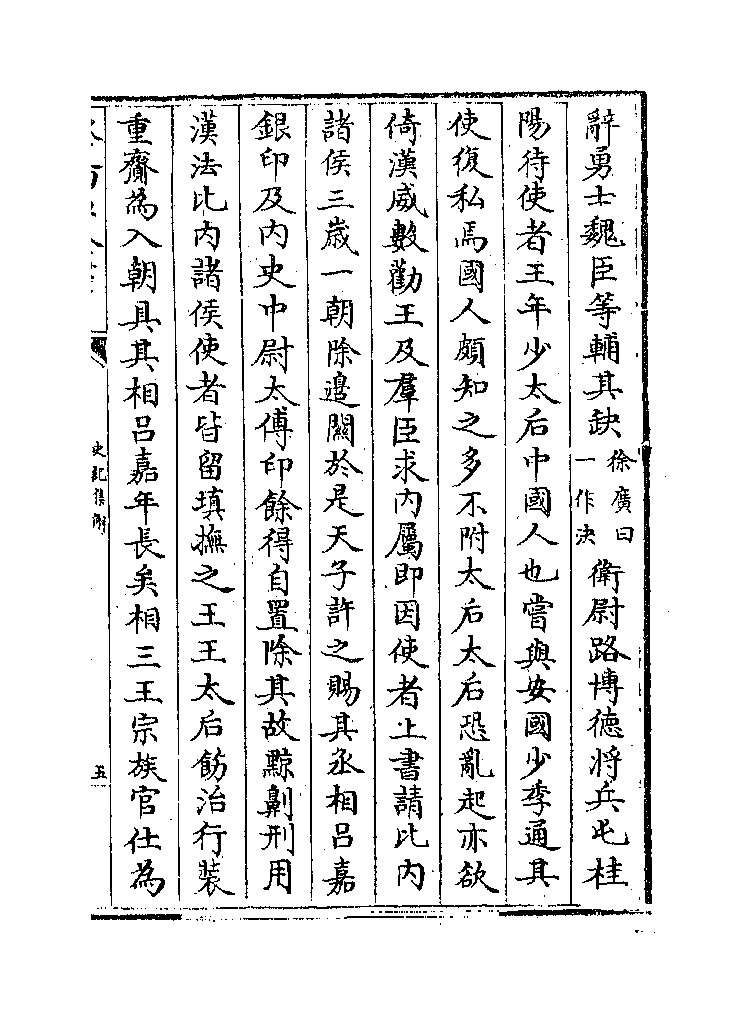 辭勇士魏臣等輔其缺徐廣曰一作決衛尉路博德將兵屯桂
陽待使者王年少太后中國人也嘗與安國少季通其
使復私焉國人頗知之多不附太后太后恐亂起亦欲
倚漢威數勸王及羣臣求内屬即因使者上書請比内
諸侯三歳一朝除邉關於是天子許之賜其丞相吕嘉
銀印及内史中尉太傅印餘得自置除其故黥劓刑用
漢法比内諸侯使者皆留填撫之王王太后飭治行装
重齎為入朝具其相吕嘉年長矣相三王宗族官仕為
史記集解
五